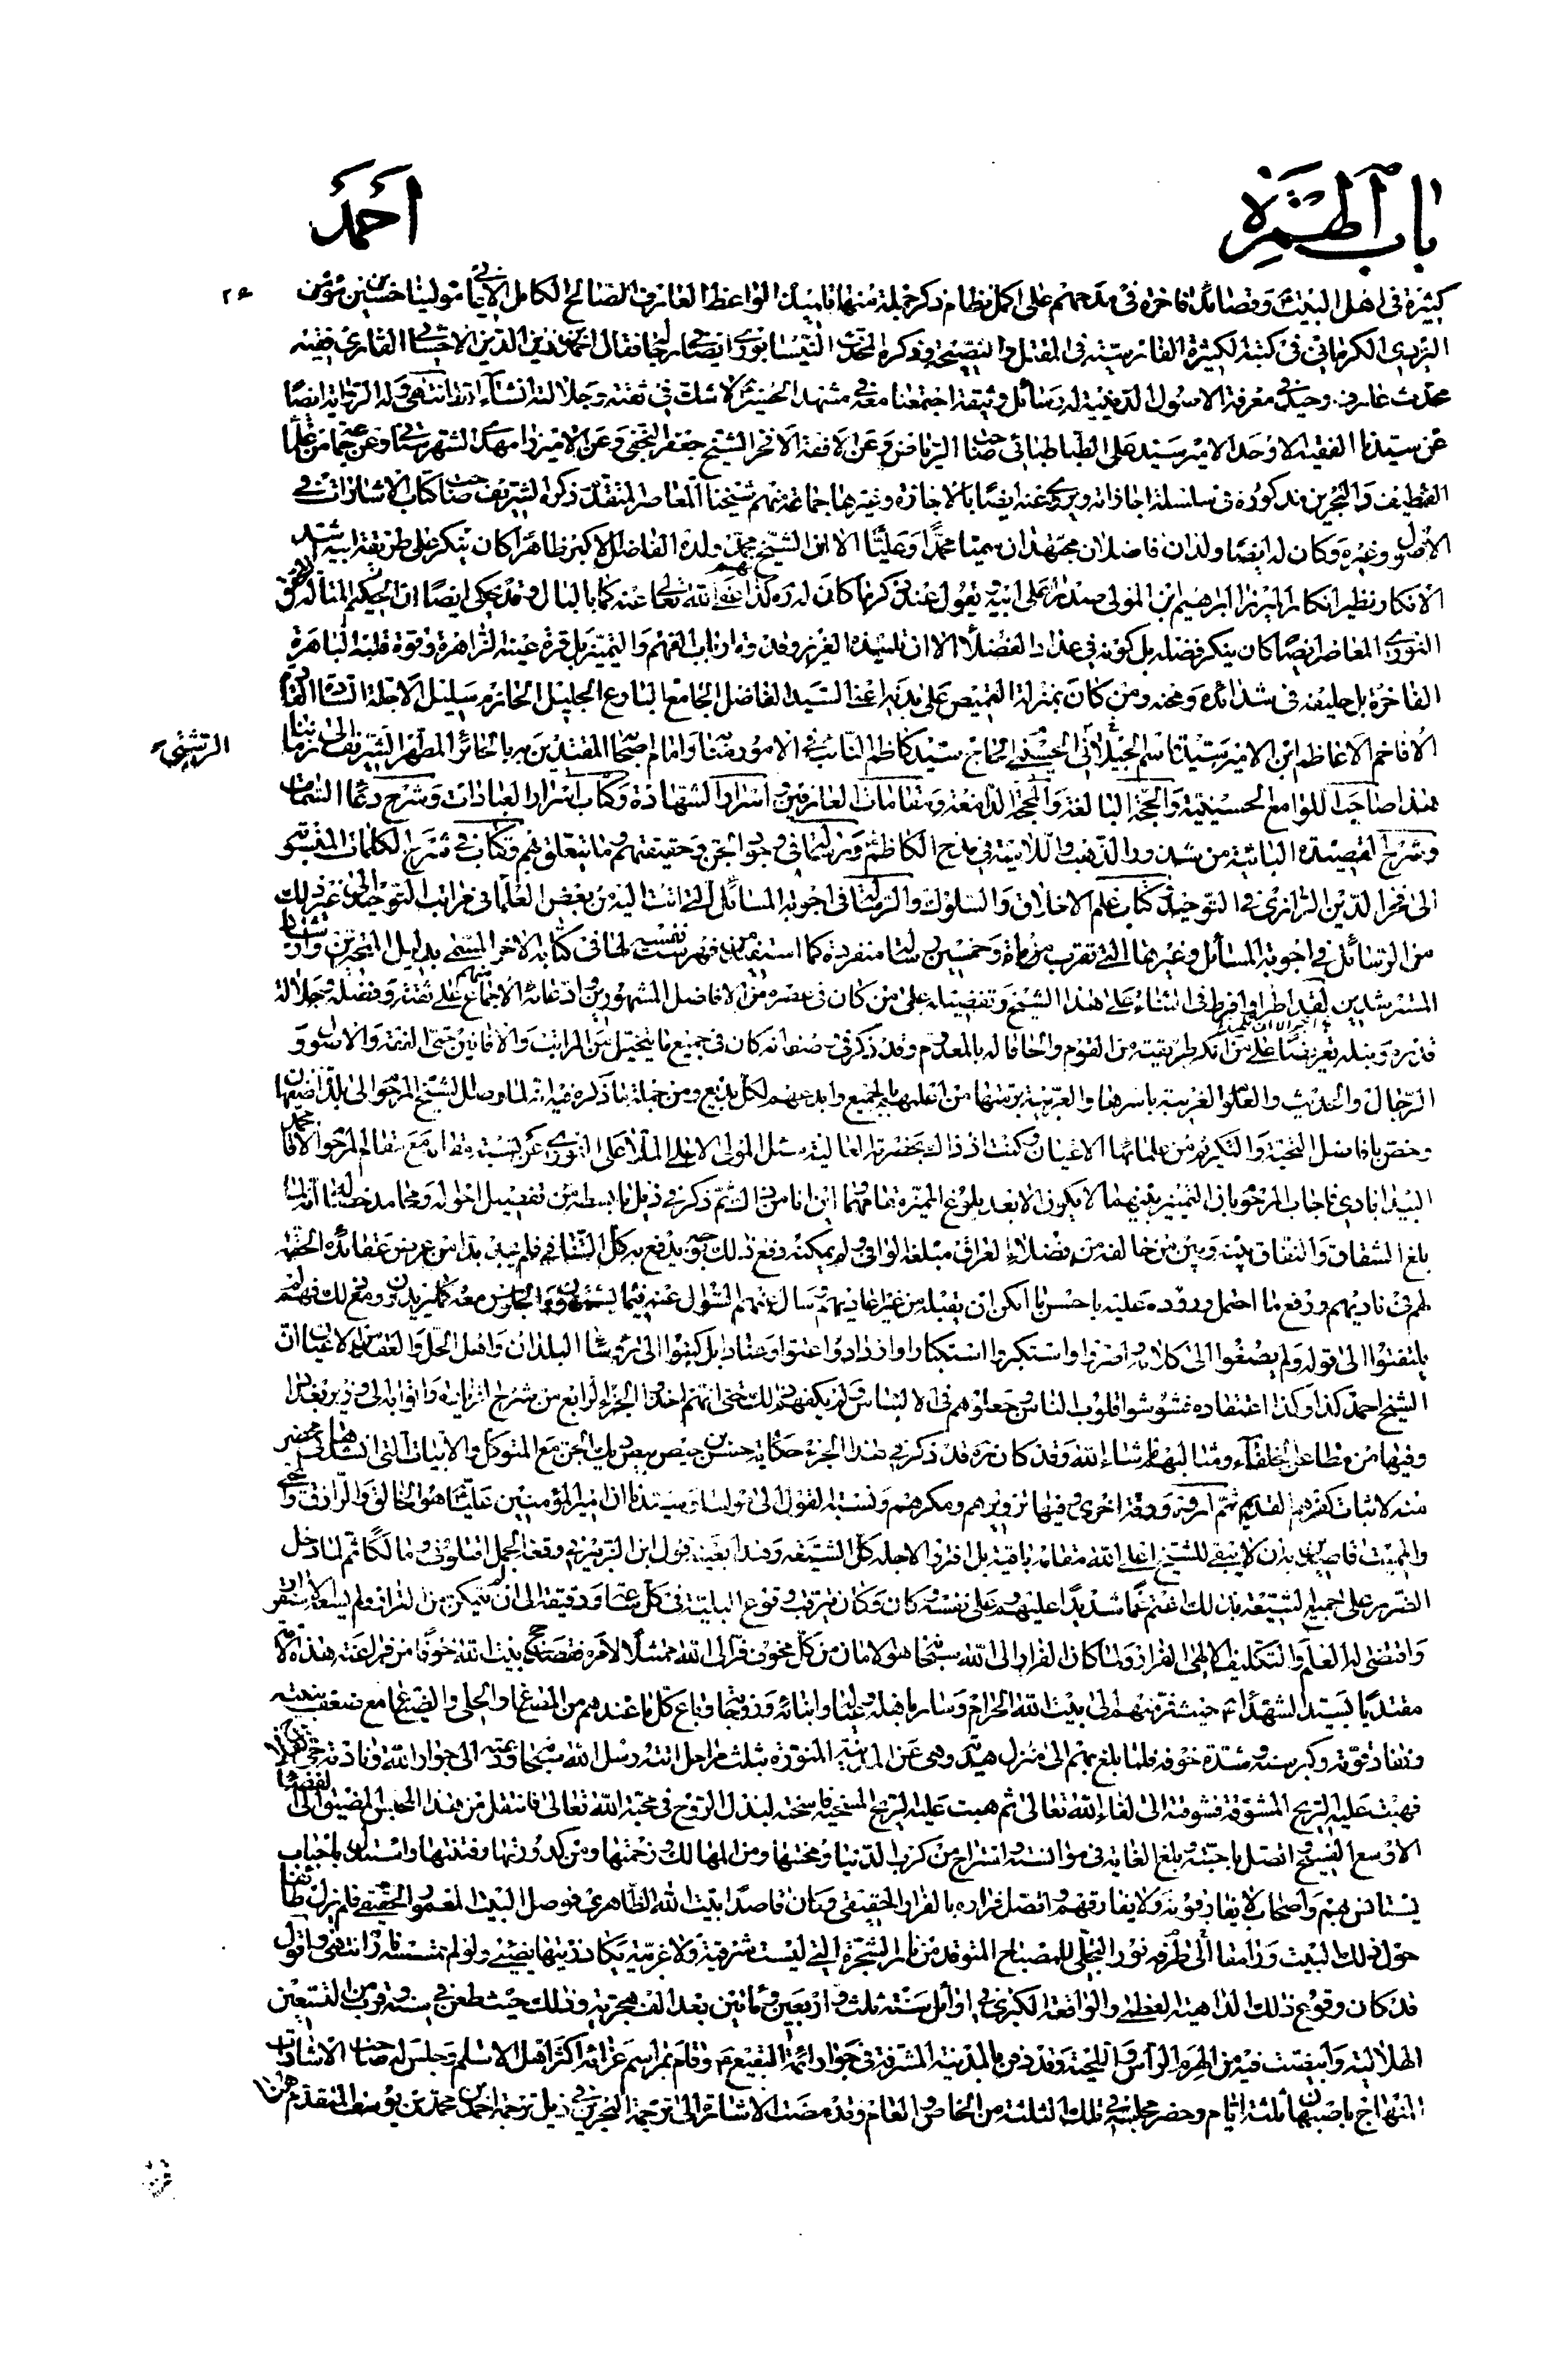 باب الهمزة
احمد
٢۶
كثيرة فى اهل البيت و قصائد فاخرة فى مدحهم على اكمل نظام ذكر جملة منها تلميذه الواعظ العارف الصالح الكامل الايمانى مولينا حسين بن مؤمن
اليزدى الكرمانى فى كتبه الكثيرة الفارسية فى المقتل و النصيحة و ذكره المحدث النيسابورى ايضا فى رجاله فقال احمد بن زين الدين الاحسائى القارى فقيه
محدث عارف وحيد فى معرفة الاصول الدينية له رسائل وثيقة اجتمعنا معه فى مشهد الحسين لا شك فى ثقته و جلالته انشاء الله تعالى انتهى و له الرواية ايضا
عن سيدنا الفقيه الاوحد الامير سيد على الطباطبائى صاحب الرياض و عن الافقه الافخر الشيخ جعفر النجفى و عن الاميرزا مهدى الشهرستانى و عن جماعة من علماء
القطيف و البحرين مذكورة فى سلسلة اجازاته و يروى عنه ايضا بالاجازة و غيرها جماعة منهم شيخنا المعاصر المتقدم ذكره الشريف صاحب كتاب الاشارات فى
الاصول و غيره و كان له ايضا ولدان فاضلان مجتهدان سميا محمدا و عليا الا ان الشيخ محمد ولده الفاضل الاكبر ظاهرا كان ينكر على طريقة ابيه اشد
الانكار نظير انكار الميرزا ابراهيم ابن المولى صدرا على ابيه و يقول عند ذكرها كان له ره كذا عفى الله تعالى عنه كما بالبال و قد يحكى ايضا ان الحكيم المتأله
النورى المعاصر ايضا كان ينكر فضله بل كونه فى عداد الفضلاء الا ان تلميذه العزيز و قدوة ارباب الفهم و التميز بل قرة عينه الزاهرة و قوة قلبه الباهرة
الفاخرة بل حليفه فى شدائده و محنه و من كان بمنزلة القميص على بدنه اعنى السيد الفاضل الجامع البارع الجليل الحازم سليل الاجلة السادة القادة
الافاخم الاعاظم ابن الامير سيد قاسم الجيلانى الحسينى الحاج سيد كاظم النائب فى الامور منابه و امام اصحابه المقتدين به بالحائر المطهر الشريف الى زماننا
الرشتى
هذا صاحب اللوامع الحسينية و الحجة البالغة و الحجة الدامغة و مقامات العارفين و اسرار الشهادة و كتاب اسرار العبادات و شرح دعاء السمات
و شرح القصيدة البائية من و اللامية فى مدح الكاظم و رسالتيه فى وجود الجن و حقيقتهم و ما يتعلق بهم و كتاب فى شرح الكلمات المنسوبة
الى فخر الدين الرازى فى التوحيد و كتاب علم الاخلاق و السلوك و الرسالة فى اجوبة المسائل التى اتت اليه من بعض العلماء فى مراتب التوحيد الى غير ذلك
من الرسائل فى اجوبة المسائل و غيرها التى تقرب من مائة و خمسين رسالة منفردة كما استفيد من فهرست نفسه لها فى كتابه الاخر المسمى بدليل المتحيرين و ارشاد
المسترشدين لقد اطرأ و افرط فى الثناء على هذا الشيخ و تفضيله على من كان فى عصره من الافاضل المشهورين و ادعائه الاجماع منهم على ثقته و فضله و جلالة
قدره و نبله تعريضا على من انكر طريقته من القوم و الحاقا له بالمعدوم و قد ذكر فى صفاته كان فى جميع ما يتخيل من المراتب و الافانين حتى الفقه و الاصول و
الرجال و الحديث و العلوم الغريبة باسرها و العربية برمتها من اعلمهم بالجميع و ابدعهم لكل بديع و من جملة ما ذكره فيه انه لما وصل الشيخ المرحوم الى بلد اصفهان
و خص بافاضل التحية و التكريم من علمائها الاعيان و كنت اذ ذاك بحضرته العالية سئل المولى الاعلى الملا على النورى عن نسبة مقامه مع مقام المرحوم الاقا محمد
البيدابادى فاجاب المرحوم بان التميز بينهما لا يكون الا بعد بلوغ المميز مقامهما و اين انا من ذاك ثم ذكر فى ذيل ما بسطه من تفصيل احواله و محامد خصاله انه لما
بلغ الشقاق و النفاق بينه و بين من خالفه من فضلاء العراق مبلغه الوافى و لم يمكنه رفع ذلك بوجه يدفع به كل التنافى فلم يبق بدا من عرض عقائده الحقة
لهم فى ناديهم و رفع ما احتمل وروده عليه باحسن ما امكن ان يقبله من غير اعاديهم و سأل منهم السؤال عنه فيما يشتهون و الجلوس معه كما يريدون و مع ذلك فهم لم
يلتفتوا الى قوله و لم يصغوا الى كلامه و اصروا و استكبروا استكبارا و ازدادوا عتوا و عنادا بل كتبوا الى رؤساء البلدان و اهل الحل و العقد من الاعيان ان
الشيخ احمد كذا و كذا اعتقاده فشوشوا قلوب الناس و جعلوهم فى الالتباس و لم يكفهم ذلك حتى انهم اخذوا الجزء الرابع من شرح الزيارة و اتوا به الى وزير بغداد
و فيها من مطاعن الخلفاء و مثالبهم ما شاء الله و قد كان ره قد ذكر فى هذا الجزء حكاية حسن بن حيص بيص و ديك الجن مع المتوكل و الابيات التى انشاها فى محضر
منه لاثبات كفرهم القديم ثم اروه ورقة اخرى و فيها تزويرهم و مكرهم و نسبة القول الى مولينا و سيدنا ان امير المؤمنين عليا هو الخالق و الرازق و المحيى
و المميت قاصدين بان لا يبقى للشيخ اعلى الله مقامه باقية بل افتروا لاجله كل الشيعة و هذا بعينه قول ابن الزبير فى وقعة الجمل اقتلونى و مالكا ثم لما دخل
الضرر على جميع الشيعة بذلك اغتم غما شديدا عليهم و على نفسه و كان يترقب وقوع البلية فى كل ساعة و دقيقة الى ان لم يتمكن من القرار و لم يسعه الاستقرار
و اقتضى له العلم و التكليف الالهى الفرار و لما كان الفرار الى الله سبحانه هو الامان من كل مخوف فر الى الله ممتثلا لامره فقصد حج بيت الله خوفا من فراعنة هذه الامة
مقتديا بسيد الشهداء حيث فر منهم الى بيت الله الحرام و سار باهله و عياله و ابنائه و زوجاته و باع كل ما عندهم من المصاغ و الحلى و الضياع مع ضعف بنيته
و نفاد قوته و كبر سنه و شدة خوفه فلما بلغ بهم الى منزل هدية و هى عن المدينة المنورة بثلث مراحل رسل الله سبحانه و دعته الى جوار الله و نادته
فهبت عليه الريح المشوقة فشوقته الى لقاء الله تعالى ثم هبت عليه الريح المسخية فاسخته لبذل الروح فى محبة الله تعالى فانتقل من هذا المحبس المضيق الى الفضاء
الاوسع الفسيح و اتصل باحبته و بلغ الغاية فى موانسته و استراح من كرب الدنيا و محنتها و من المهالك و زحمتها و من كدورتها و فتنتها و استبدل باحباب
يستانس بهم و اصحاب لا يفارقونه و لا يفارقهم و اتصل فراره بالفرار الحقيقى و كان قاصدا بيت الله الظاهرى فوصل البيت المعمور الحقيقى فلم يزل طائفا
حول ذلك البيت و رامقا الى طرفه نور التجلى للمصباح المتوقد من نار الشجرة التى ليست شرقية و لا غربية يكاد زيتها يضيئ و لو لم تمسسه نار انتهى و اقول
قد كان وقوع ذلك الداهية العظمى و الواقعة الكبرى فى اوائل سنة ثلث و اربعين و مائتين بعد الف هجرية و ذلك حيث طعن فى سنه و قرب من التسعين
الهلالية و ابيضت فيه من الهرم الرأس و اللحية و قد دفن بالمدينة المشرفة فى جوار ائمة البقيع ع و اقام بمراسم عزائه اكثر اهل الاسلام و جلس له صاحب الاشارات
المنهاج باصبهان ثلثة ايام و حضر مجلسه فى تلك الثلثة من الخاص و العام و قد مضت الاشارة الى ترجمة البحرين فى ذيل ترجمة احمد بن محمد بن يوسف المتقدم هنا